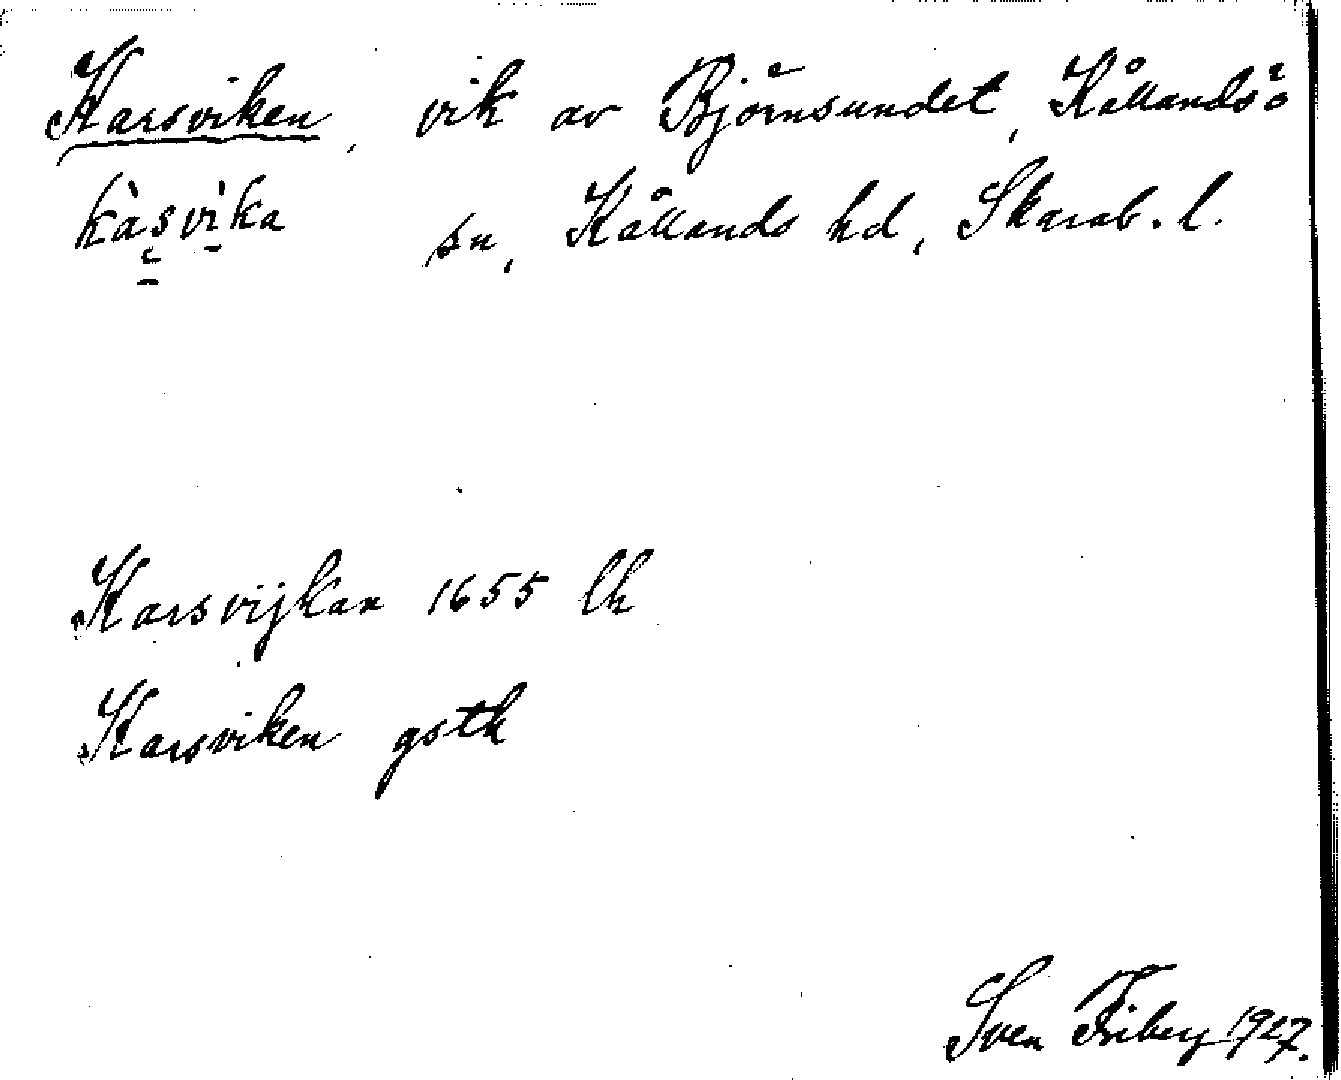 Karsviken, vik av Björnsundet, Kållandsö
kàs̬vìka sn, Kållands hd, Skarab. l.
Karsvijkan 1655 lk
Karsviken gstk
Sven Friberg 1927.